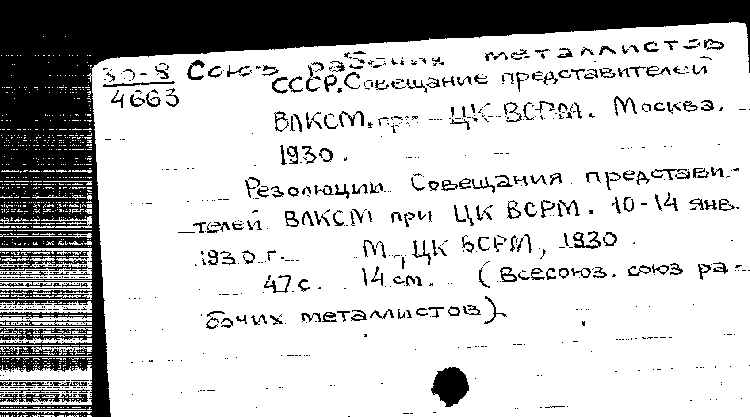 30-8 Союз рабочих металлистов
4663
СССР. Совещание представителей
ВЛКСМ. при ЦК ВСРМ. Москва.
1930.
Резолюции Совещания представи-
телей ВЛКСМ при ЦК ВСРМ. 10-14 янв.
1930 г. М., ЦК ВСРМ, 1930.
47 с. 14 см. (Всесоюз. союз ра-
бочих металлистов).